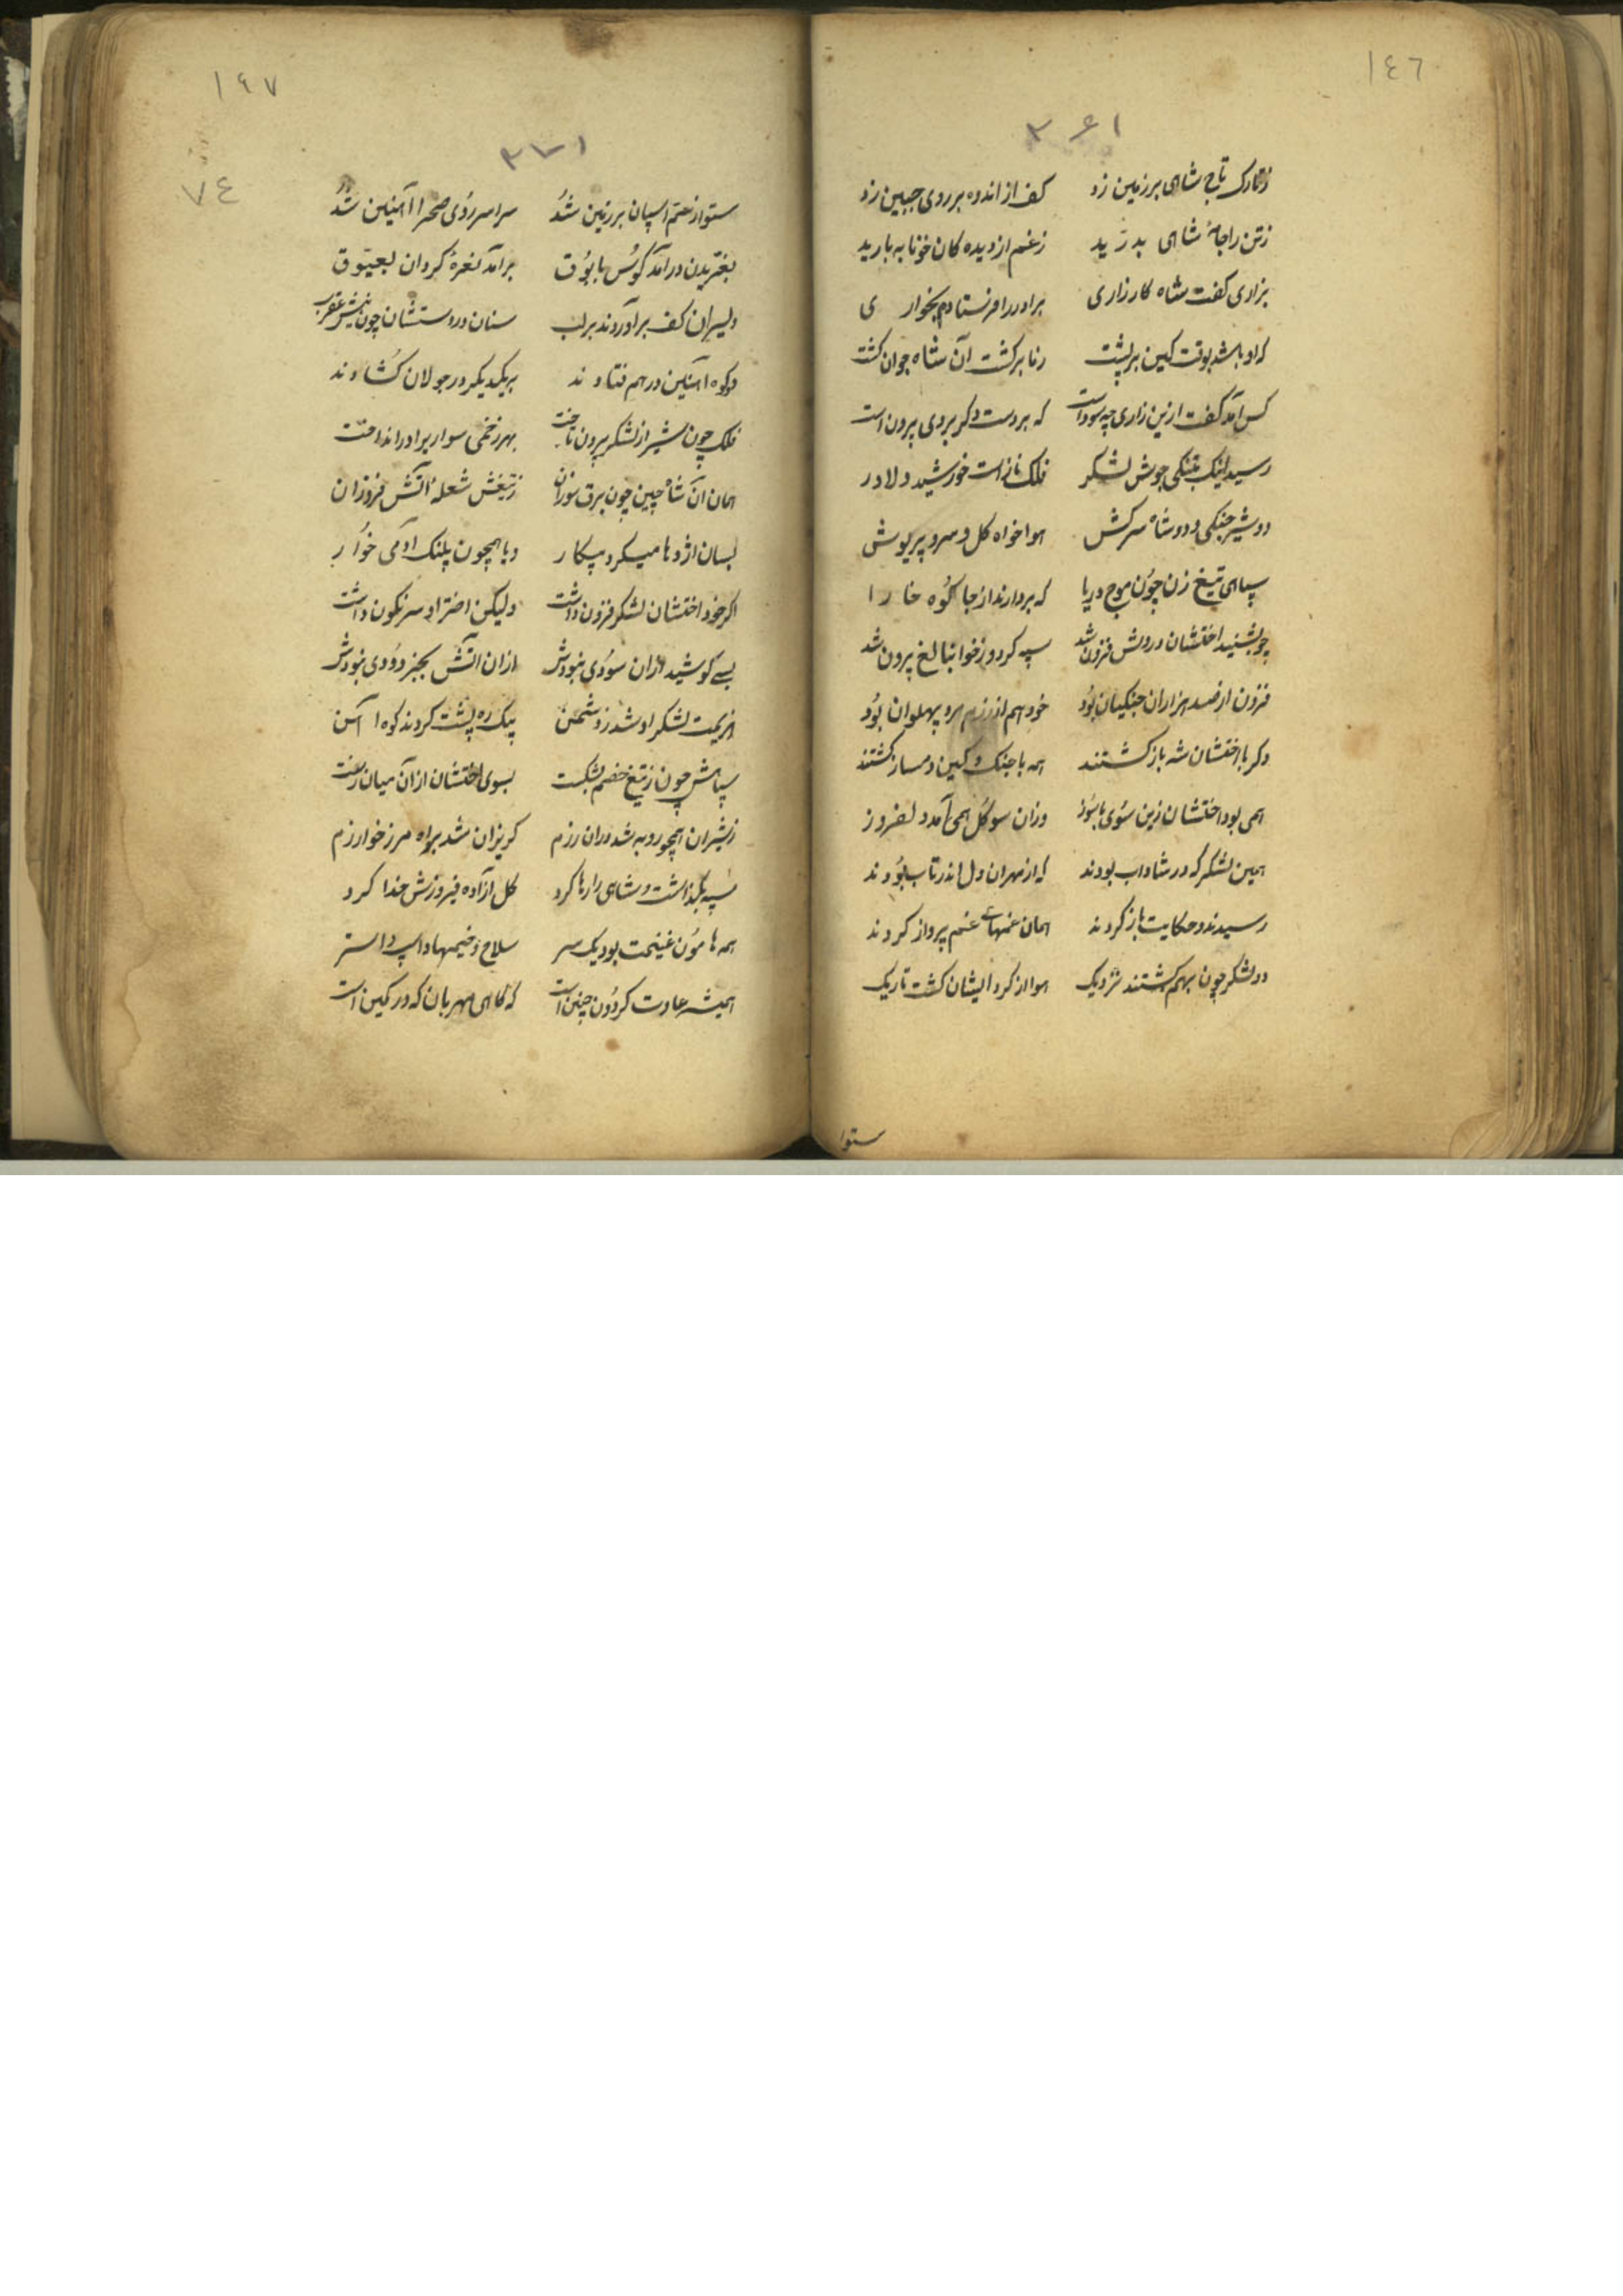 ١٤٦
ز تارک تاج شاهی بر زمین زد کف از اندوه بر روی جبین زد
ز تن را جامهٔ شاهی بدرّید ز غم از دیده کان خونابه بارید
بزاری کفت شاه کارزاری برادر را فرستادم بخواری
که او باشد بوقت کین بر پشت برکشت آن شاه جوان کشت
کس آمد کفت ازین زاری چه سود است که بر دست دکر بردی برون است
رسید اینک بتنکی جوش لشکر فلک نازاست خورشید دلاور
دو شیر جنکی و دو شاه سرکش هوا خواه کل و سرو پریوش
سپاهی تیغ زن چون موج دریا که بردارند از جا کوه خارا
چو بشنید اختشان دردش فزون شد سپه کرد و ز برون شد
فزون از صد هزاران جنکیان بود خود هم از رزم پهلوان بود
دکر با اختشان شه باز کشتند همه با جنک و کین دمساز کشتند
همی بود اختشان زین سوی با سوز وزان سو کل همی آمد دلفروز
همین لشکر که در شاداب بودند که از مهران دل اندر تاب بودند
رسیدند و حکایت باز کردند همان غمهای غم پرداز کردند
دو لشکر چون بهم کشتند نزدیک هوا از کرد ایشان کشت تاریک
ستوا
١٤٧
٧٤
ستوا از ختم اسپان بر زمین شد سراسر روی صحرا آهنین شد
بغریدن در آمد کوس با بوق بر آمد نعرهٔ کردان بعیوق
دلیران کف بر آوردند بر لب سنان در دستشان چون نیش عقرب
دو کوه آهنین در هم فتادند بر یکدیکر در جولان کشادند
فلک چون شیر از لشکر برون تاخت بهر زخمی سوار برادر انداخت
همان آن شاه چین چون برق سوزان ز تیغش شعلهٔ آتش فروزان
بسان اژدها میکرد پیکار و یا همچون پلنک آدمی خوار
اکر خود اختشان لشکر فزون داشت ولیکن اختر او سرنکون داشت
بسی کوشید ازان سودی نبودش ازان آتش بجز دودی نبودش
هزیمت لشکر او شد ز دشمن بیک ره پشت کردند کوه آهن
سپاهش چون ز تیغ خصم بشکست بسوی اختشان از آن میان رفت
ز شیران همچو روبه شد دران رزم کریزان شد براه مرز خوارزم
سپه بکذاشت و شاهی را رها کرد کل آزاده فیروزش خدا کرد
همه هامون غنیمت بود یک سر سلاح و خیمها و اسپ و استر
همیشه عادت کردون چنین است که کاهی مهربان که در کمین است